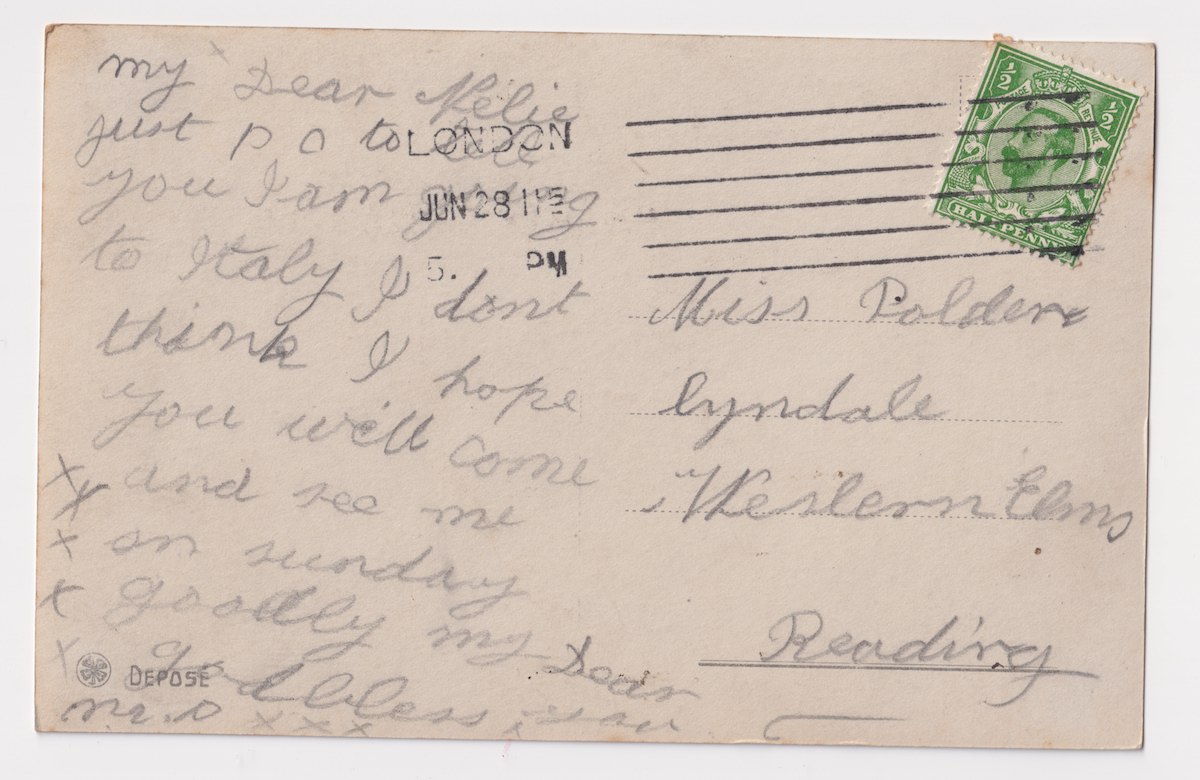 my Dear Nelie
just P C to tell
you I am going
to Italy I dont
think I hope
you will come
and see me
on sunday
goodby my Dear
god bless you
x x x x x
x x x x
LONDON
JUN 28 11
5. PM
1/2 1/2
HALFPENNY
Miss Polden
Lyndale
Western Elms
Reading
DEPOSE